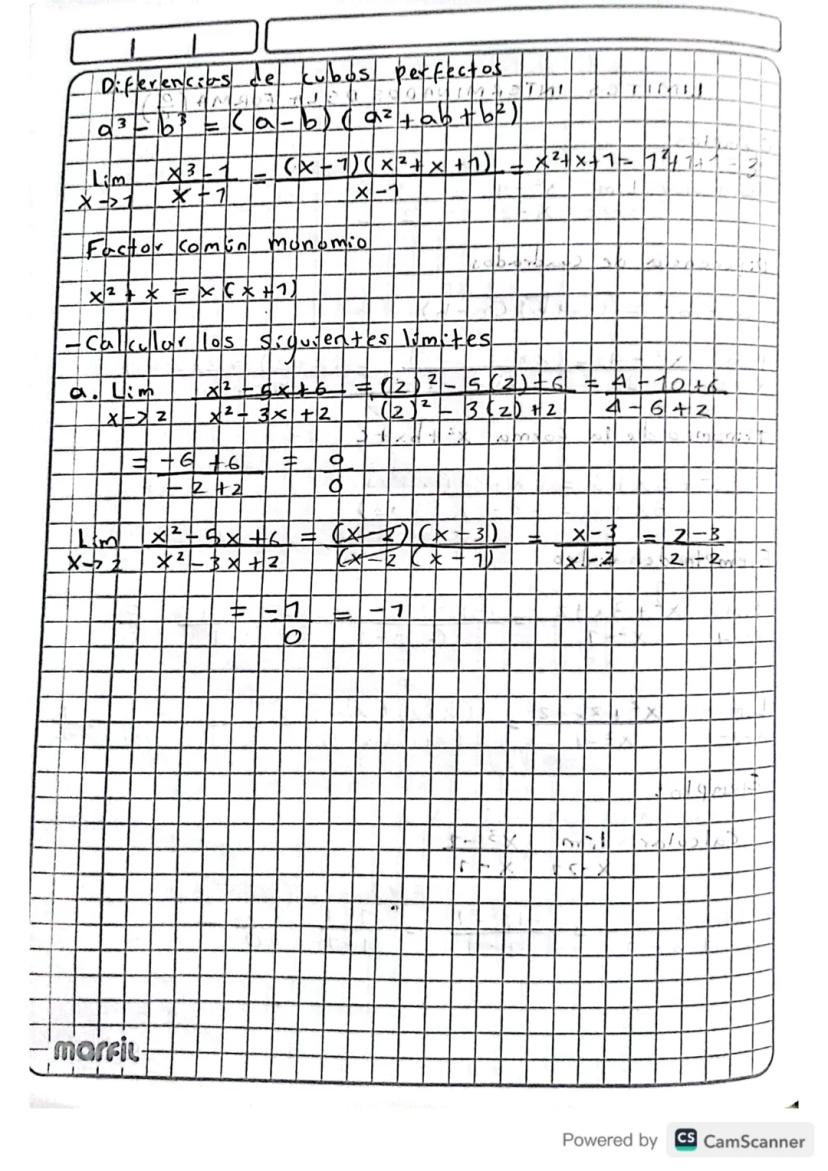 Diferencias de cubos perfectos
a³ - b³ = (a - b) (a² + ab + b²)
Lim x→1 (x³ - 1)/(x - 1) = (x - 1)(x² + x + 1)/(x - 1) = x² + x + 1 = 1² + 1 + 1 = 3
Factor común monomio
x² + x = x(x + 1)
- Calcular los siguientes límites
a. Lim x→2 (x² - 5x + 6)/(x² - 3x + 2) = ((2)² - 5(2) + 6)/((2)² - 3(2) + 2) = (4 - 10 + 6)/(4 - 6 + 2)
= (-6 + 6)/(-2 + 2) = 0/0
Lim x→2 (x² - 5x + 6)/(x² - 3x + 2) = (x - 2)(x - 3)/(x - 2 (x - 1) = (x - 3)/(x - 2) = (2 - 3)/(2 - 2)
= -1/0 = -1
marfil
Powered by CS CamScanner